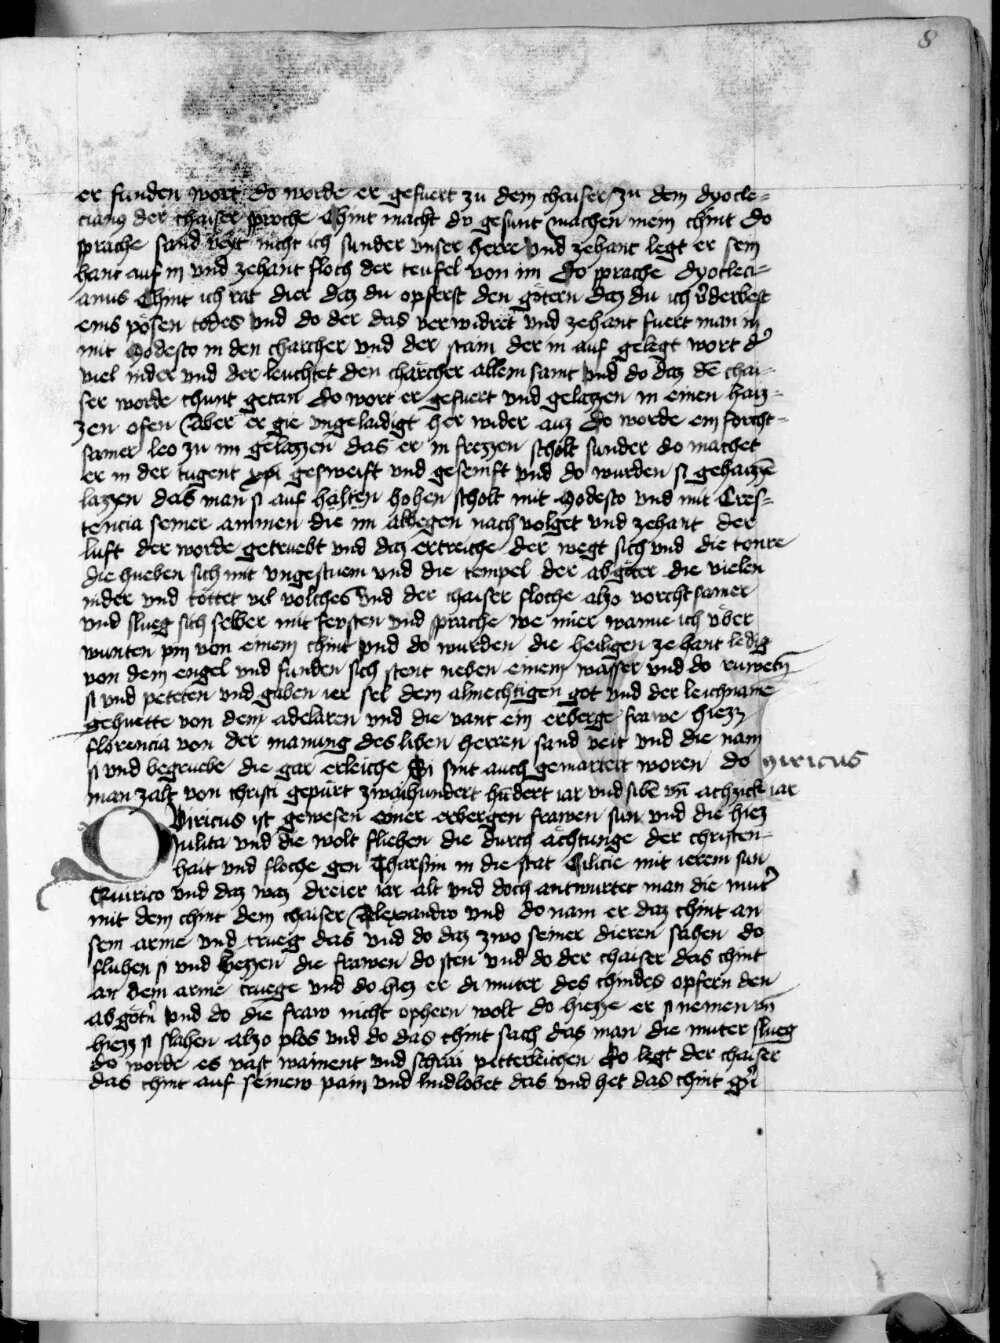 8
er funden wort do worde er gefuert zu dem chaiser zu dem dyocle-
cianus der chaiser sproche Chint macht du gesunt machen mein chint do
sprache sand veyt nicht ich sunder unser herre und zehant legt er sein
hant auf in und zehant floch der teufel von im Do sprache dyocleci-
anus Chint ich rat dier daz du opferst den götern daz du ich v̉derbest
eins pösen todes und do der das verwidret und zehant fuert man in
mit Modesto in den charcher und der stain der in auf gelegt wort d̉
viel nider und der leuchtet den charcher allein samt und do daz dē chai-
ser worde chunt getan Do wort er gefuert und gelazzen in einen haiz-
zen ofen Aber er gie ungelaidigt her wider auz Do worde ein forcht-
samer leo zu im gelazzen das er in frezzen scholt sunder do machet
er in der tugent xpi gesweift und gesemft und do wurden si gehaizzē
lazzen das man si auf halten hohen scholt mit Modesto und mit Cres-
tencia seiner ammen die im albegen nach volget und zehant der
luft der worde getruebt und daz ertreiche der wegt sich und die tonre
die hueben sich mit ungestuem und die tempel der abgöter die vielen
nider und tottet vil volches Und der chaiser floche alzo vorchtsamer
und slueg sich selber mit feysten und sprache we mier wanne ich uber
wunten pin von einem chint und do wurden die heiligen zehant ledig
von dem engel und funden sich stent neben einem wasser und do ruwetn̄
si und peteten und gaben ier sel dem almechtigen got und der leichname
gehuette von dem adelaren und die vant ein erberge frawe hiezz
florencia von der manung des liben herren sand veit und die nam
si und begruebe die gar erleiche Si sint auch gemartert woren do
man zalt von christi gepurt zwaihundert hūdert iar und sibē un̄ achzich iar
Quiricus ist gewesen einer erbergen frawen sun und die hiez
Julita und die wolt fliehen die durch ächtunge der christen-
hait und floche gen Tharsim in die stat Cilicie mit ierem sun
Quirico und daz waz dreier iar alt und doch antwurtet man die mut̉
mit dem chint dem chaiser Alexandro und do nam er daz chint an
sein arme und trueg das und do daz zwo seiner dieren sahen do
fluhen si und liezzen die frawen do sten und do der chaiser das chint
an dem arme truege und do hiez er di muter des chindes opfern den
abgötn̉ und do die fraw nicht ophern wolt do hiezze er si nemen un̄
hiezz si slahen alzo plos und do das chint sach das man die muter slueg
do worde es vast wainent und schrai pitterleichen Do legt der chaiser
das chint auf seinew pain und lindlobet das und het das chint g̉n